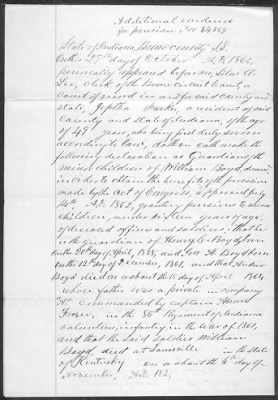 Additional evidence
for pension No 84.859
State of Indiana, Boone county SS.
On this 27th day of October A.D. 1866,
personally appeared before me, Silas A.
Lee, clerk of the Boone circuit Court, a
Court of record in and for said county and
state Jeptha Parker, a resident of said
County and state of Indiana, of the age
of 48 years, who being first duly sworn
according to law, doth on oath make the
following declaration as Guardian of the
minor children of William Boyd, deceased,
in order to obtain the benefits of the provision
made by the act of Congress, approved July
14th A.D. 1862, granting pensions to minor
children, under sixteen years of age,
of deceased officers and soldiers, that he
is the guardian of Henry C. Boyd born
on the 20th day of April, 1858, and Boyd born
on the 12th day of December, 1861, and that
Boyd died on or about the day of April 1864
whose father was a private in company
commanded by captain
in the 86th Regiment of Indiana
volunteers, infantry, in the war of 1861,
and that the said soldier William
Boyd, died at Louisville in the state
of Kentucky on or about the 6th day of
November, A.D. 1862,